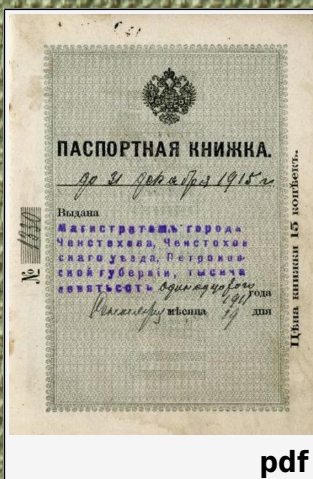 ПАСПОРТНАЯ КНИЖКА.
до 31 декабря 1915 г
Выдана
Магистратомъ города
Ченстохова, Ченстохов
скаго уѣзда, Петроков
ской губернiи, тысяча
девятьсотъ одиннадцатого года
мѣсяца 19 дня
№ 1030
Цѣна книжки 15 копѣекъ.
pdf